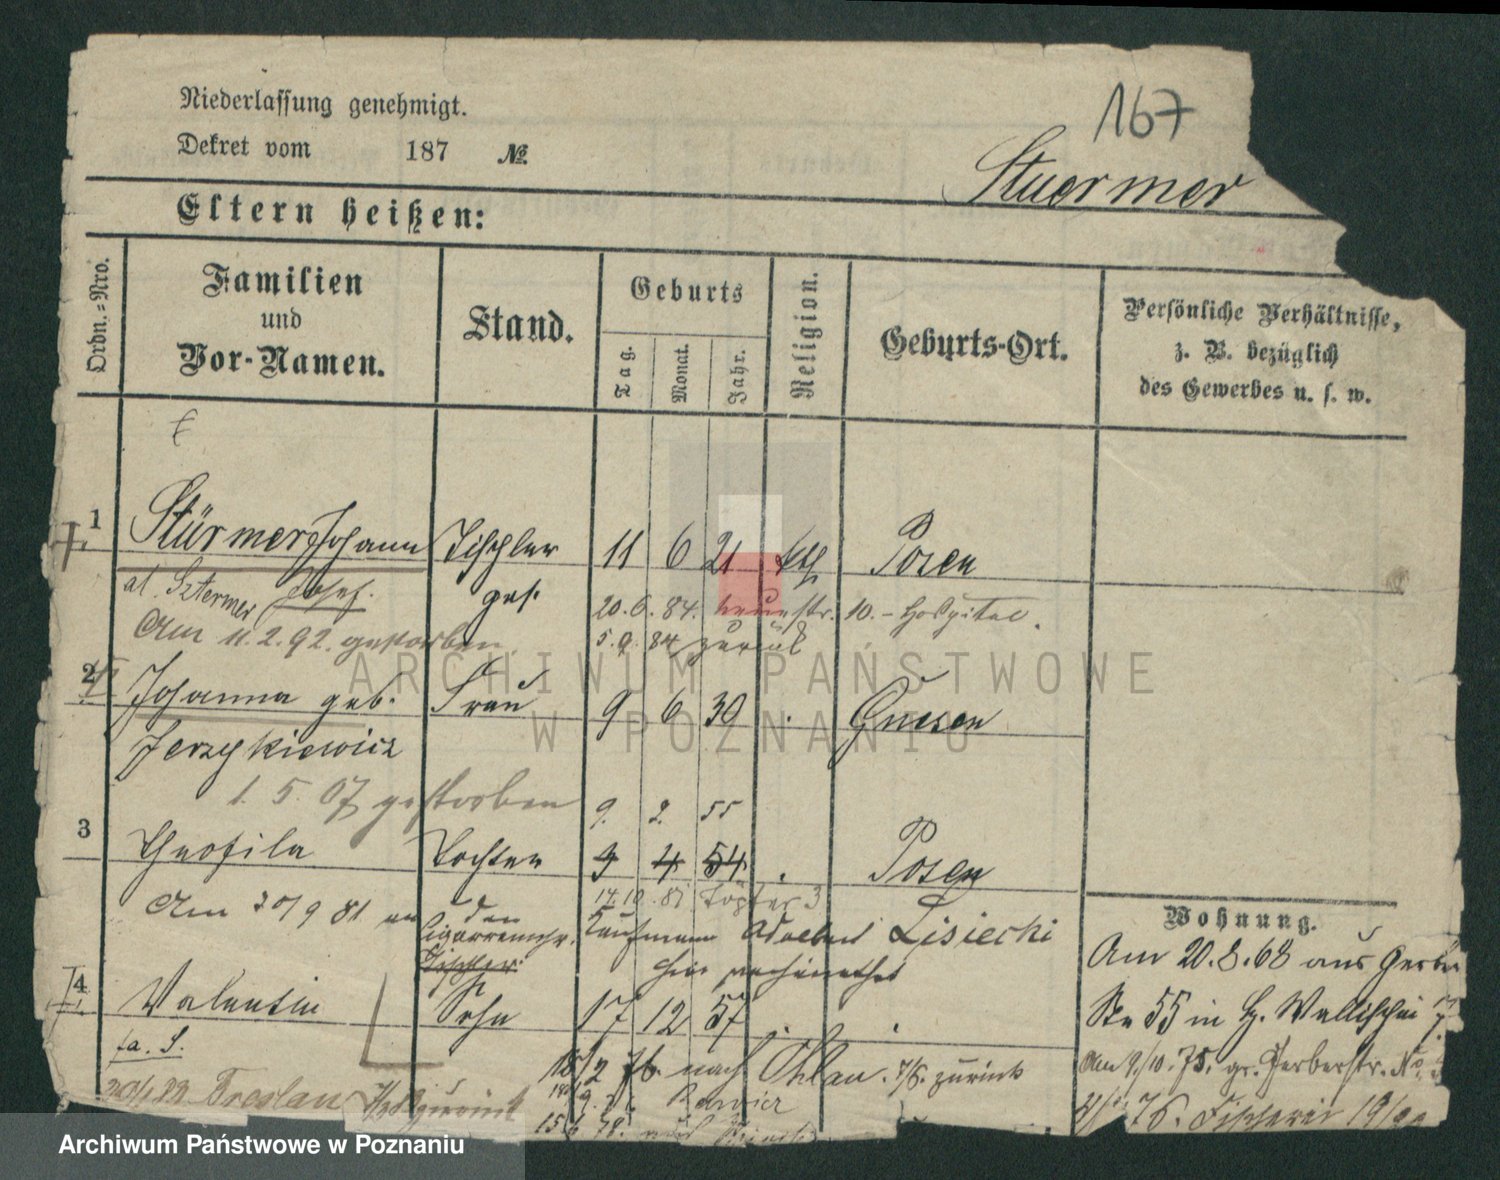 167
Niederlassung genehmigt.
Dekret vom 187 №.
Stuermer
Eltern heißen:
Ordn.-Nro.
Familien
und
Vor-Namen.
Stand.
Geburts
Tag.
Monat.
Jahr.
Religion.
Geburts-Ort.
Persönliche Verhältnisse,
z. B. bezüglich
des Gewerbes u. s. w.
1 Stürmer Johann Tischler 11 6 21 kth Posen
al. Sztermer Josef. ges.
20.6.84. 10. - Hospital.
Am 11.2.92. gestorben 5.9.84 zurück
2 Johanna geb. Frau 9 6 30 . Gnesen
Jerzykiewicz
1. 5. 07 gestorben
9. 2. 55
3 Theofila Tochter 9 4 54 . Posen
14.10.81 Töpfer 3
Am 20/9 81 an den
Kaufmann Adalbert Lisiecki
hier verheirathet
4 Valentin Sohn 17 12 57
fa. S.
nach Ohlau. 7/5. zurück
Breslau zurück
15.6.78. nach
Wohnung.
Am 20.8.68 aus Gerber
Str 55 in Wallischei 7
Am 9/10.75. gr. Gerberstr. No.
76. Fischerei 19/20
ARCHIWUM PAŃSTWOWE
W POZNANIU
Archiwum Państwowe w Poznaniu